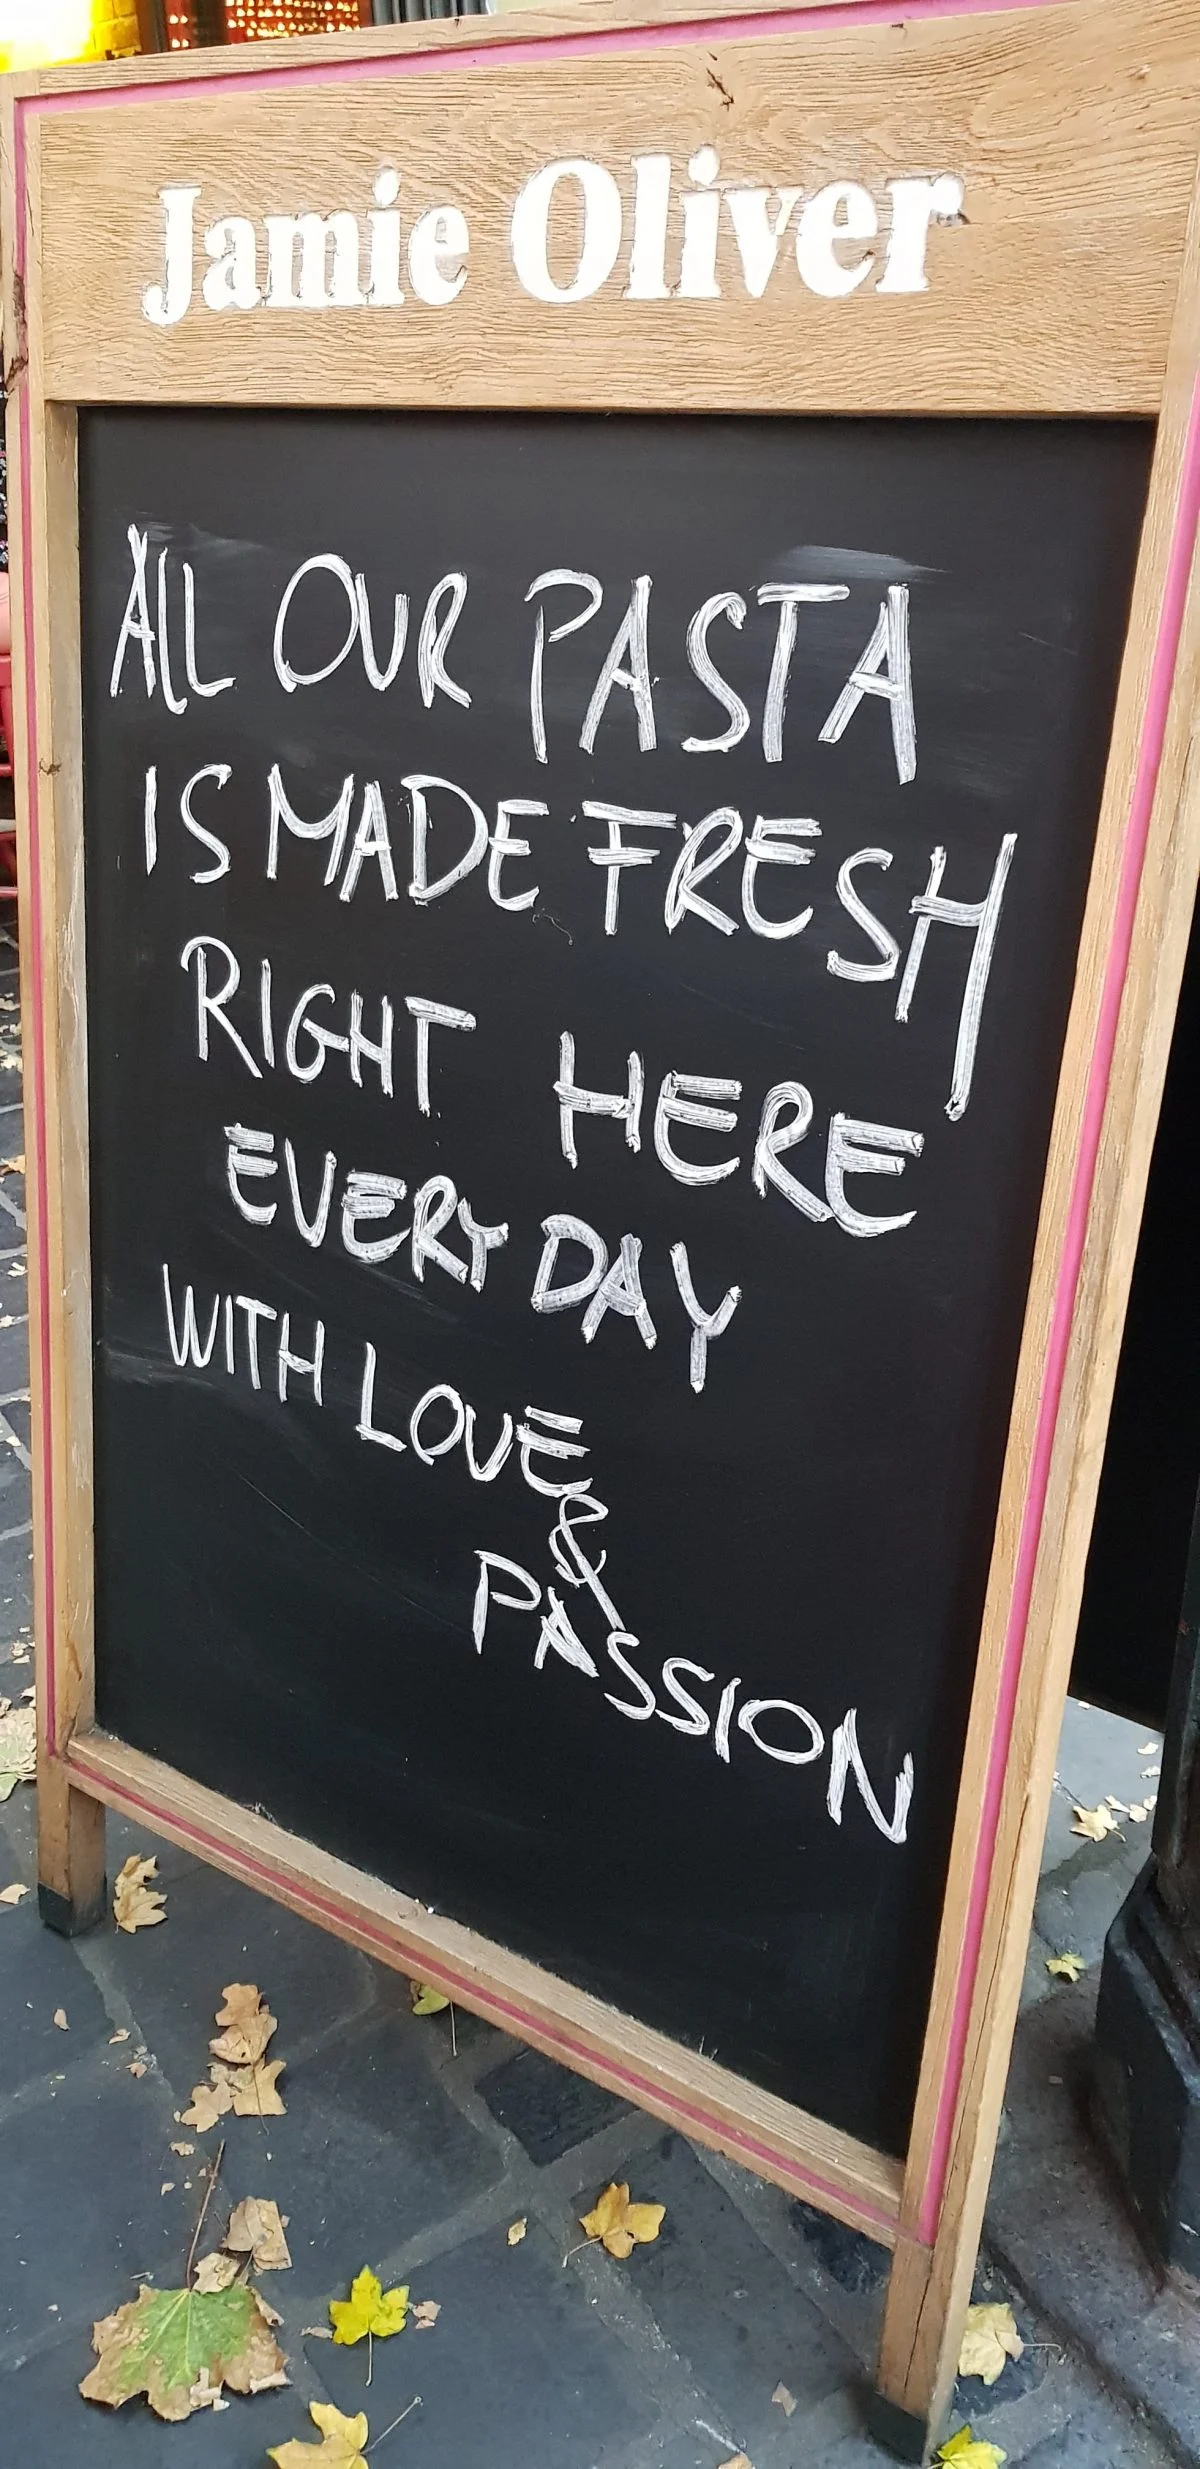 Jamie Oliver
ALL OUR PASTA
IS MADE FRESH
RIGHT HERE
EVERY DAY
WITH LOVE
&
PASSION